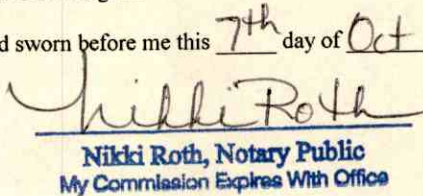 d sworn before me this 7th day of Oct
Nikki Roth
Nikki Roth, Notary Public
My Commission Expires With Office